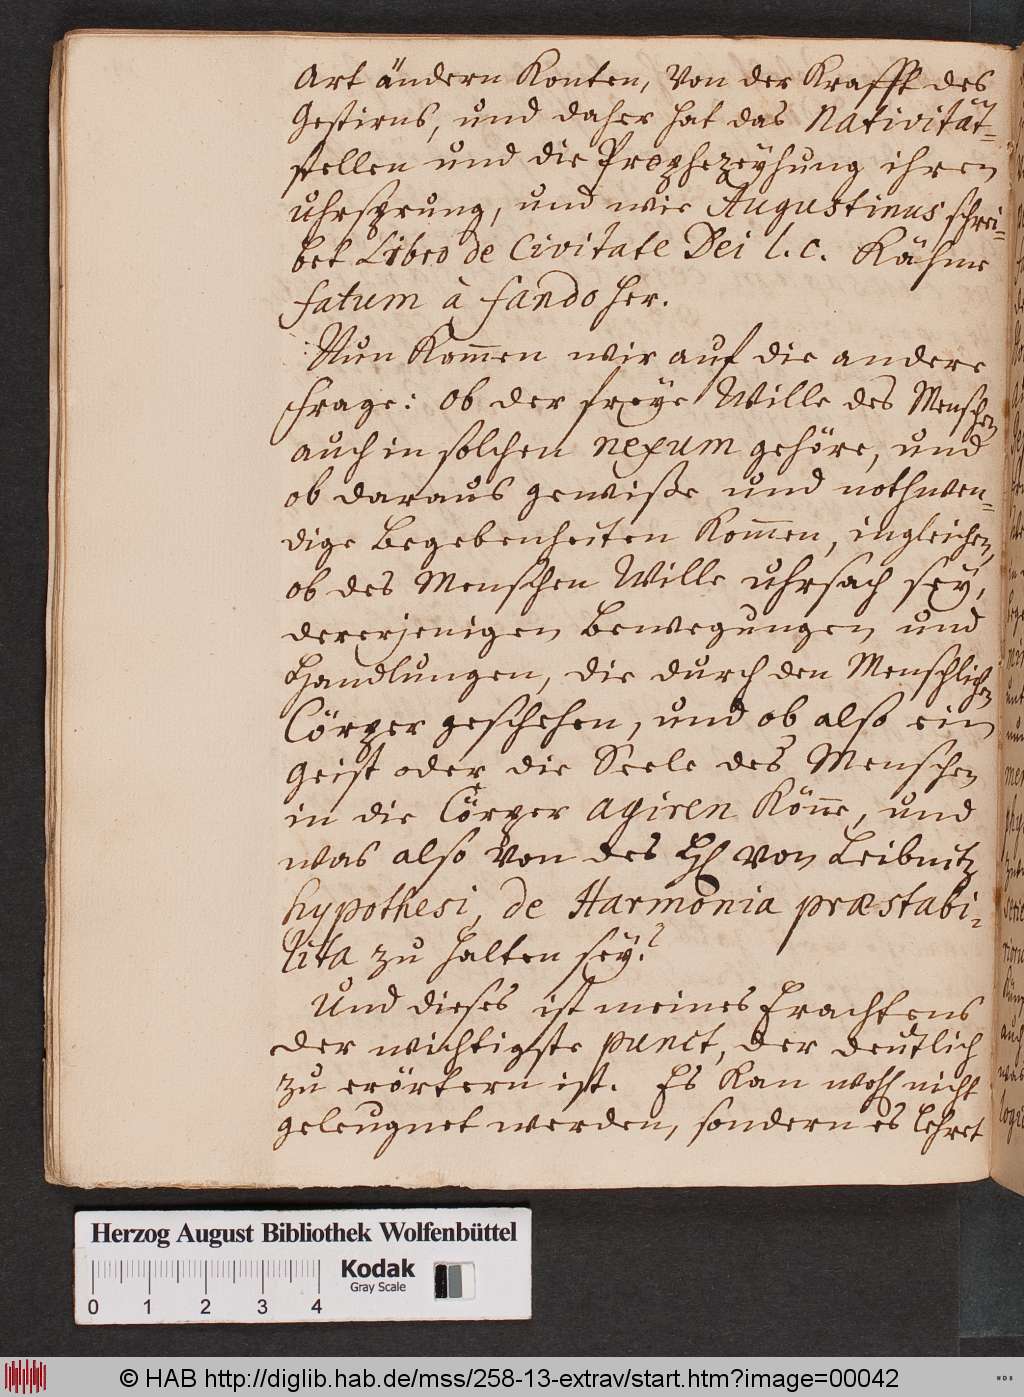 Art ändern Konten, von der Krafft des
Gestirns, und daher hat das Nativität=
stellen und die Prophezeyhung ihren
uhrsprung, und wie Augustinus schrei=
bet Libro de Civitate Dei l. c. Kähme
fatum à fando her.
Nun Kom̄en wir auf die andere
Frage: ob der freye Wille des Menschen
auch in solchen nexum gehöre, und
ob daraus gewiße und nothwen=
dige Begebenheiten Kom̄en, ingleichen,
ob des Menschen Wille uhrsach sey,
dererjenigen Bewegungen und
Handlungen, die durch den Menschlichen
Cörper geschehen, und ob also ein
Geist oder die Seele des Menschen
in die Cörper agiren Kön̄e, und
was also von des H von Leibnitz
hypothesi, de Harmonia præstabi=
lita zu halten sey?
Und dieses ist meines Erachtens
der wichtigste punct, der deutlich
zu erörtern ist. Es Kan wohl nicht
geleugnet werden, sondern es lehret
Herzog August Bibliothek Wolfenbüttel
Kodak
Gray Scale
0 1 2 3 4
© HAB http://diglib.hab.de/mss/258-13-extrav/start.htm?image=00042